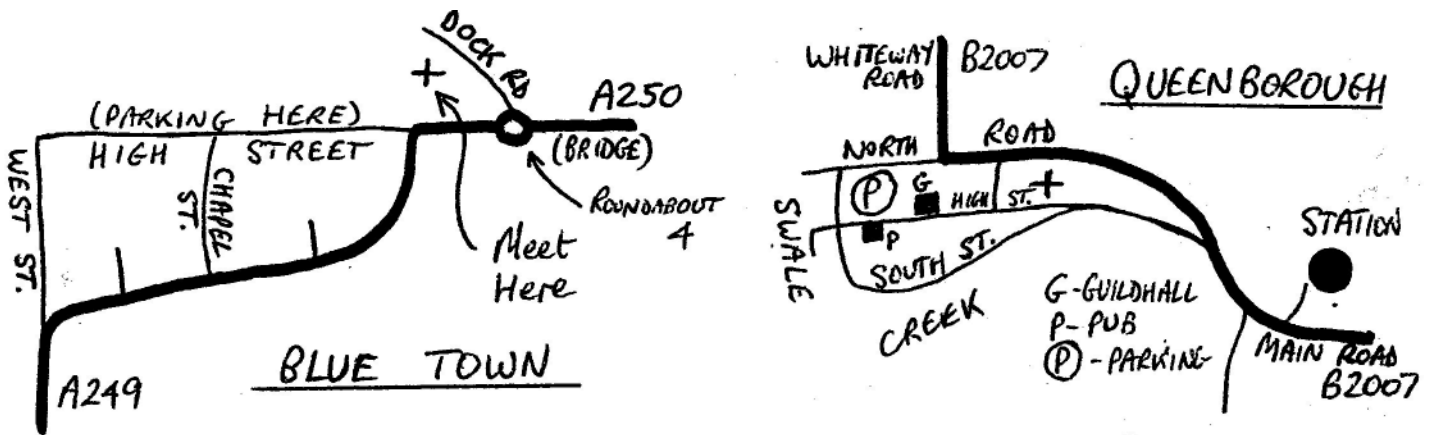 DOCK RD
A250
(BRIDGE)
(PARKING HERE)
HIGH STREET
WEST ST.
CHAPEL ST.
ROUNDABOUT
4
Meet
Here
BLUE TOWN
A249
WHITEWAY
ROAD
B2007
QUEENBOROUGH
NORTH ROAD
P
G
HIGH ST.
P
SWALE
SOUTH ST.
CREEK
STATION
G-GUILDHALL
P-PUB
P-PARKING
MAIN ROAD
B2007